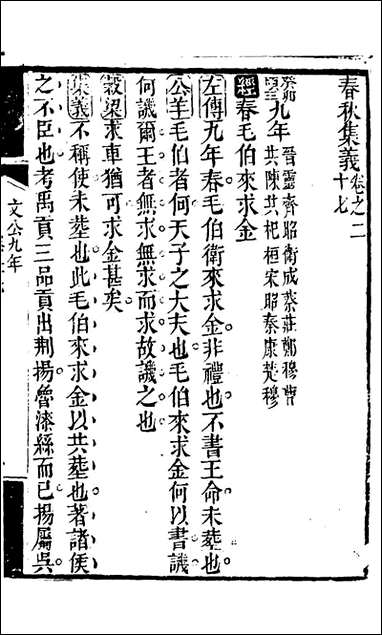 春秋集義卷之二十七
癸卯頃王九年晉靈齊昭衛成蔡莊鄭穆曹共陳共杞桓宋昭秦康楚穆
經春毛伯來求金
左傳九年春毛伯衛來求金非禮也不書王命未塟也
公羊毛伯者何天子之大夫也毛伯來求金何以書譏
何譏爾王者無求無求而求故譏之也
榖梁求車猶可求金甚矣
集義不稱使未塟也此毛伯來求金以共塟也著諸侯
之不臣也考禹貢三品貢出荆揚魯漆絲而已揚屬吳
文公九年